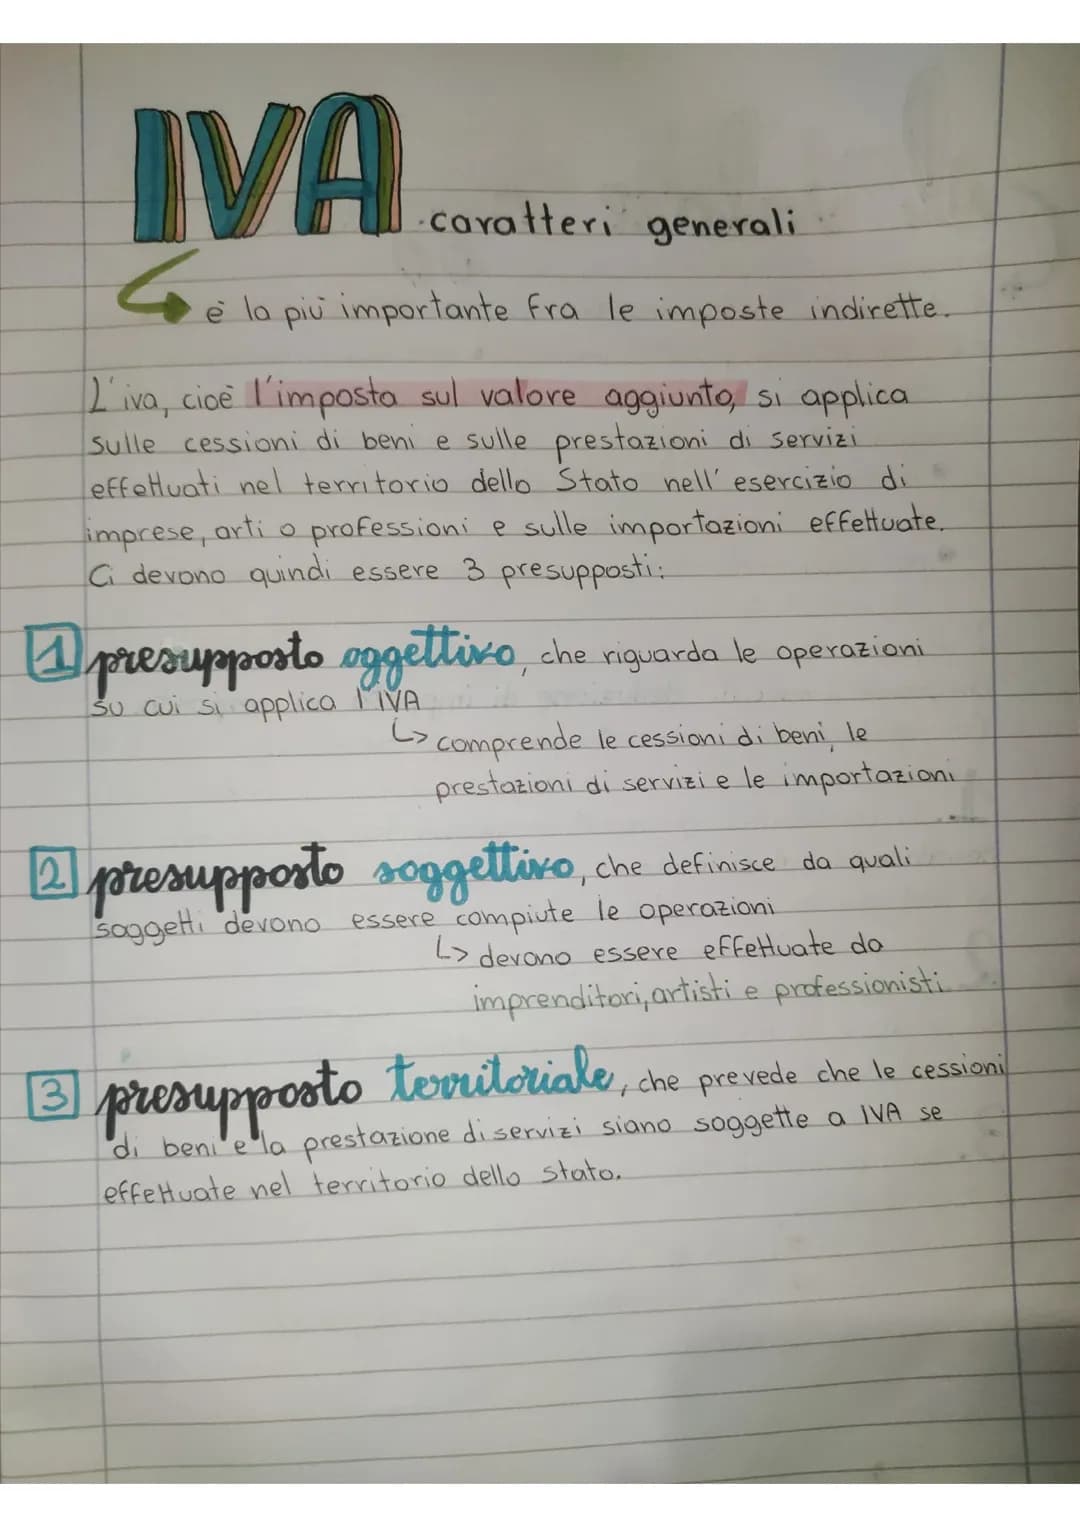 IVA caratteri generali
è la più importante fra le imposte indirette.
L'iva, cioè l'imposta sul valore aggiunto, si applica
sulle cessioni di beni e sulle prestazioni di servizi
effettuati nel territorio dello Stato nell'esercizio di
imprese, arti o professioni e sulle importazioni effettuate.
Ci devono quindi essere 3 presupposti:
1 presupposto oggettivo, che riguarda le operazioni
su cui si applica l'IVA
↳ comprende le cessioni di beni, le
prestazioni di servizi e le importazioni
2 presupposto soggettivo, che definisce da quali
soggetti devono essere compiute le operazioni
↳ devono essere effettuate da
imprenditori, artisti e professionisti
3 presupposto territoriale, che prevede che le cessioni
di beni e la prestazione di servizi siano soggette a IVA se
effettuate nel territorio dello stato.